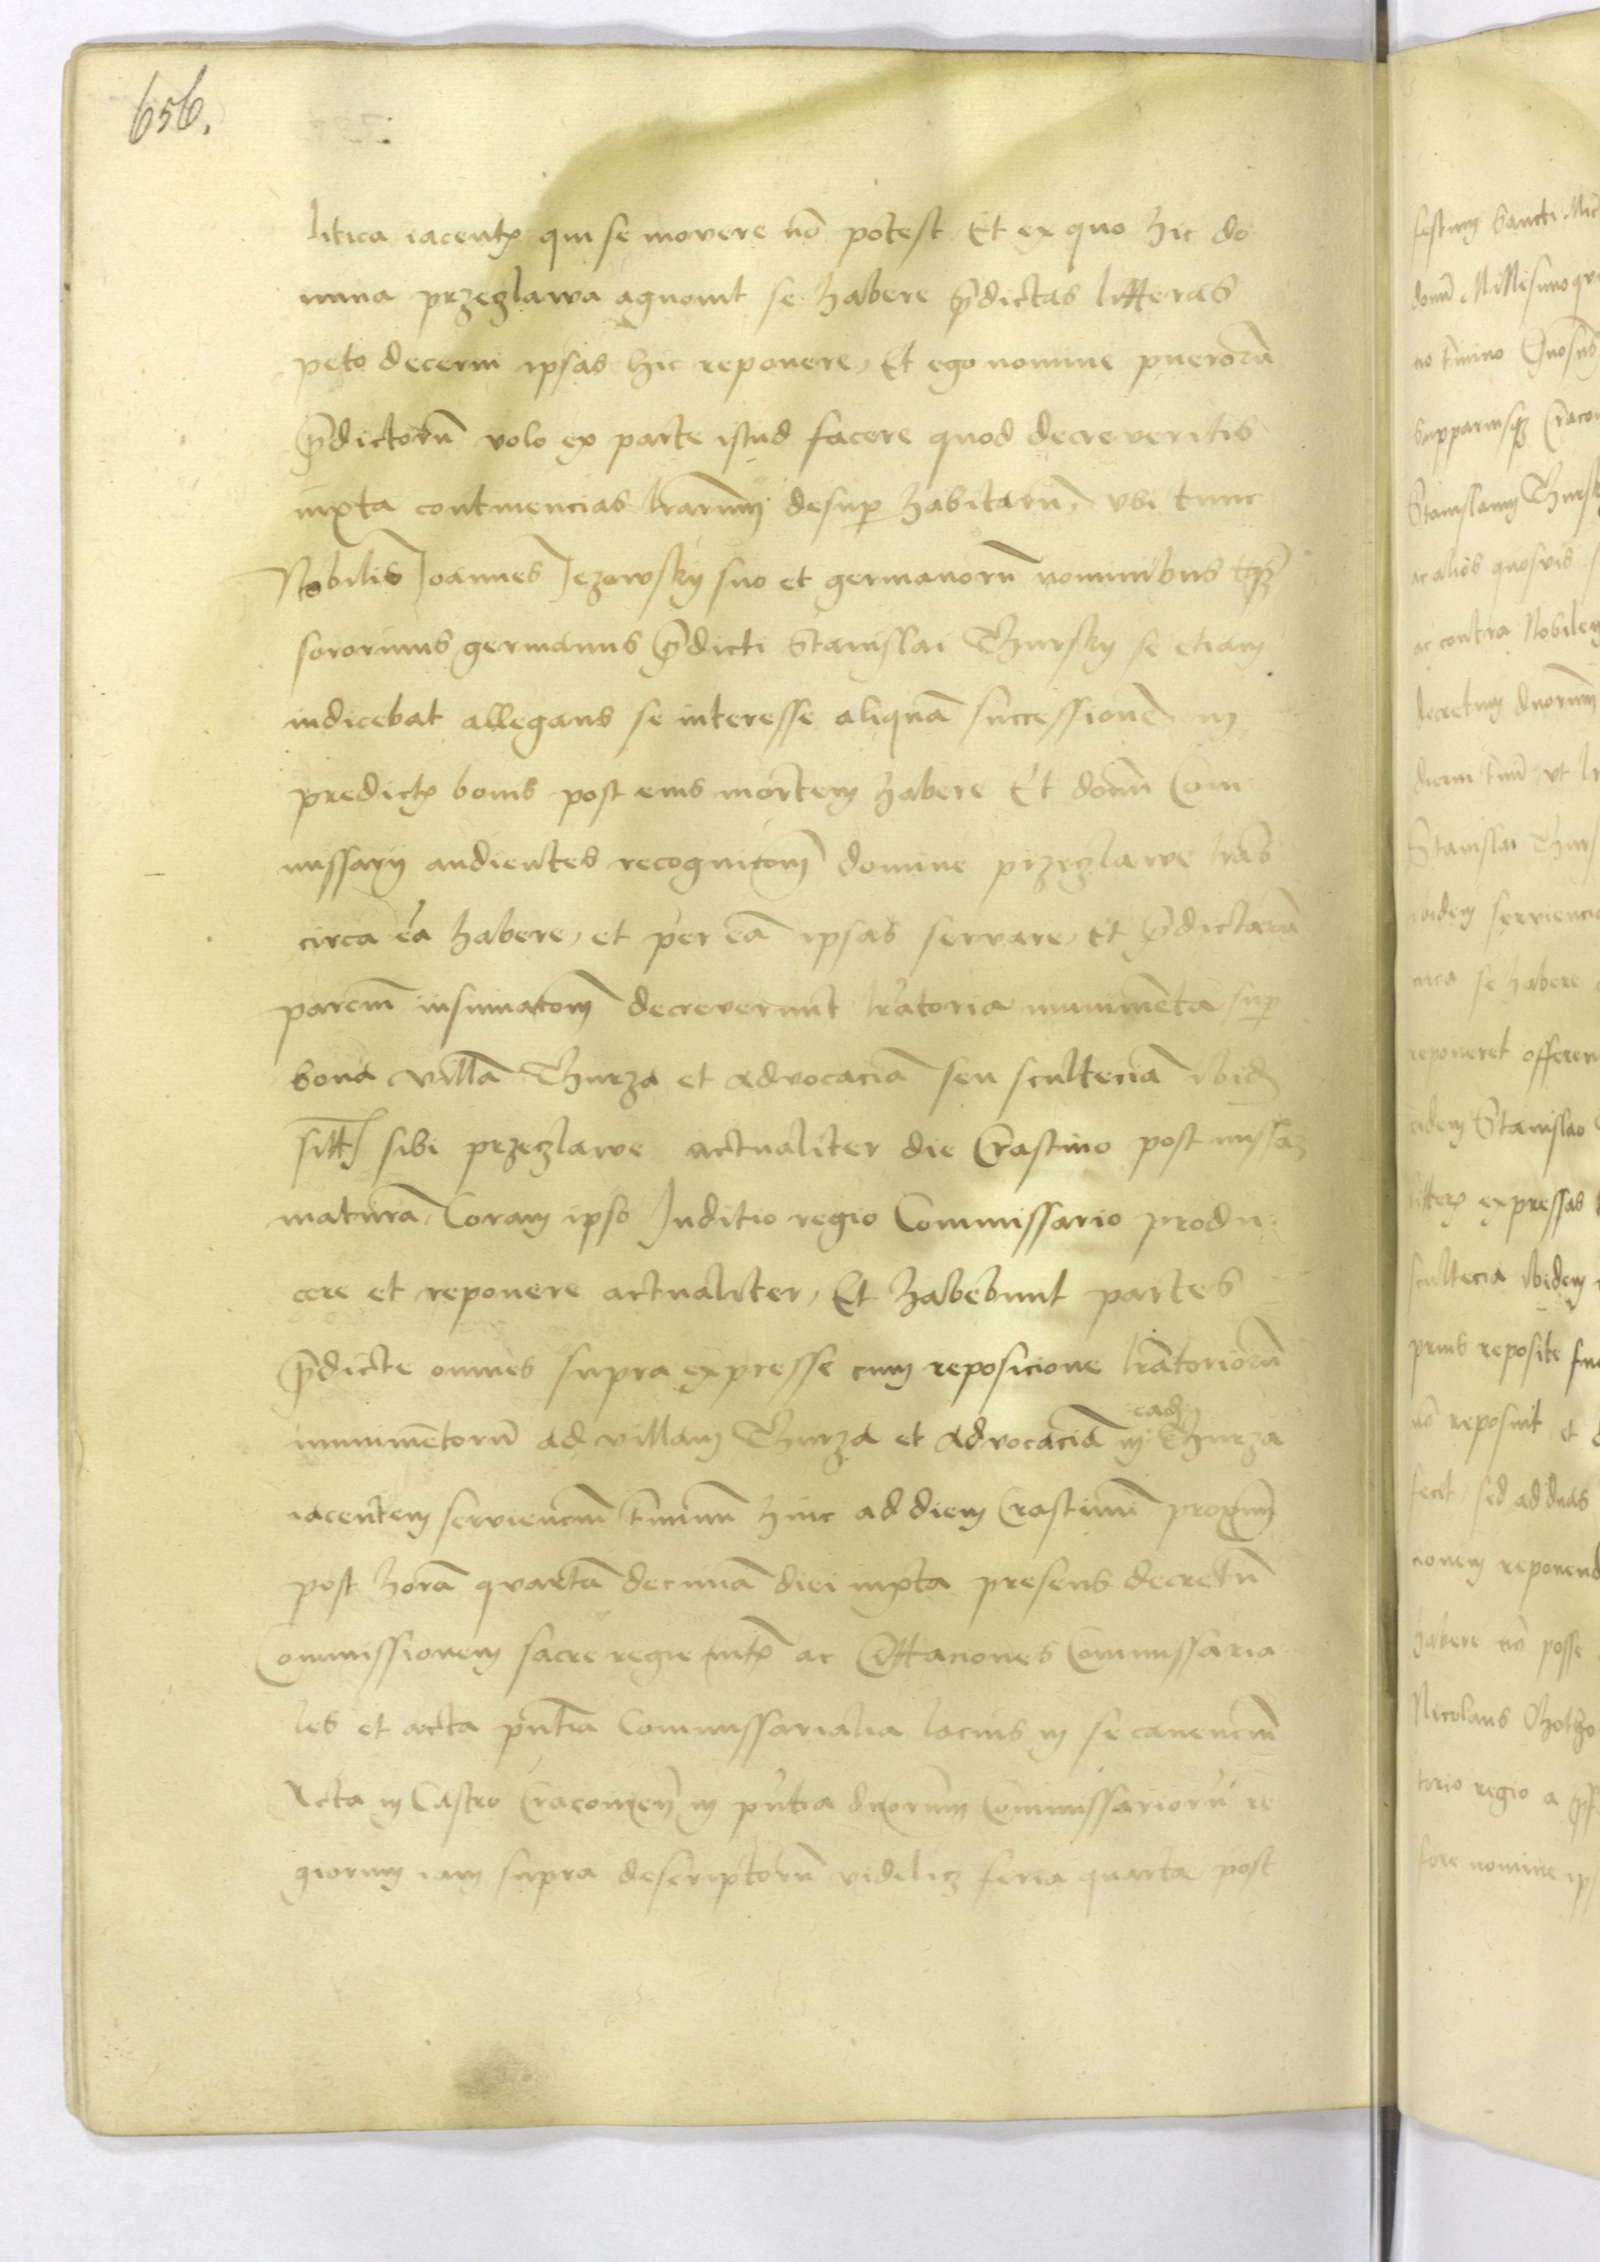 656.
litica iacentis qui se movere nō potest Et ex quo hic do
mina przeczlawa agnovit se habere p̄dictas litteras
peto decerni ipsas hic reponere, Et ego nomine puerorū
p̄dictorū volo ex parte istud facere quod decreveritis
iuxta continencias lrarum desuper habitarū, vbi tunc
Nobilis Joannes Jezowsky suo et germanorū nominibus tāq̄
sororinus germanus p̄dicti Stanislai Thursky se etiam
indicebat allegans se interesse aliquā successionē in
predictis bonis post eius mortem habere Et domī Com
missarii audientes recognitionē domine przeczlawe lrās
circa eā habere, et per eā ipsas servare, et p̄dictarū
parcium insinuationem decreverunt lratoria munimēta super
bona villā Thurza et advocaciā seu sculteciā ibidē
sitā sibi przeczlawe actualiter die Crastino post missaꝫ
maturā, Coram ipso Juditio regio Commissario produ
cere et reponere actualiter, Et habebunt partes
p̄dicte omnes supra expresse cum reposicione lrātoriorū
munimētorū ad villam Thurza et advocaciā in eadē Thurza
iacentem serviencium terminum hinc ad diem Crastinum proximum
post horā quartā decimā diei iuxta presens decretū
Commissionem sacre regie mtis ac Cittaciones Commissaria
les et acta pn̄tia Commissarialia lacius in se canencium
Acta in Castro Cracovien̄ in pn̄tia dnorum Commissariorū re
giorum iam supra descriptorū videlicꝫ feria quarta post
festum Sancti Mic
domī Millesimo qui
no termino
Cracov
Stanislaum Thursk
ac alios quosvis
ac contra Nobilem
decretum dnorum
Stanislai Thurs
ibidem serviencia
se habere
reponeret offeren
eidem Stanislao
expressas
scultecia ibidem
prius reposite fue
nō reposuit et
fecit sed ad duas
cionem reponend
habere nō posse
Nicolaus
torio regio a
fore nomine ips